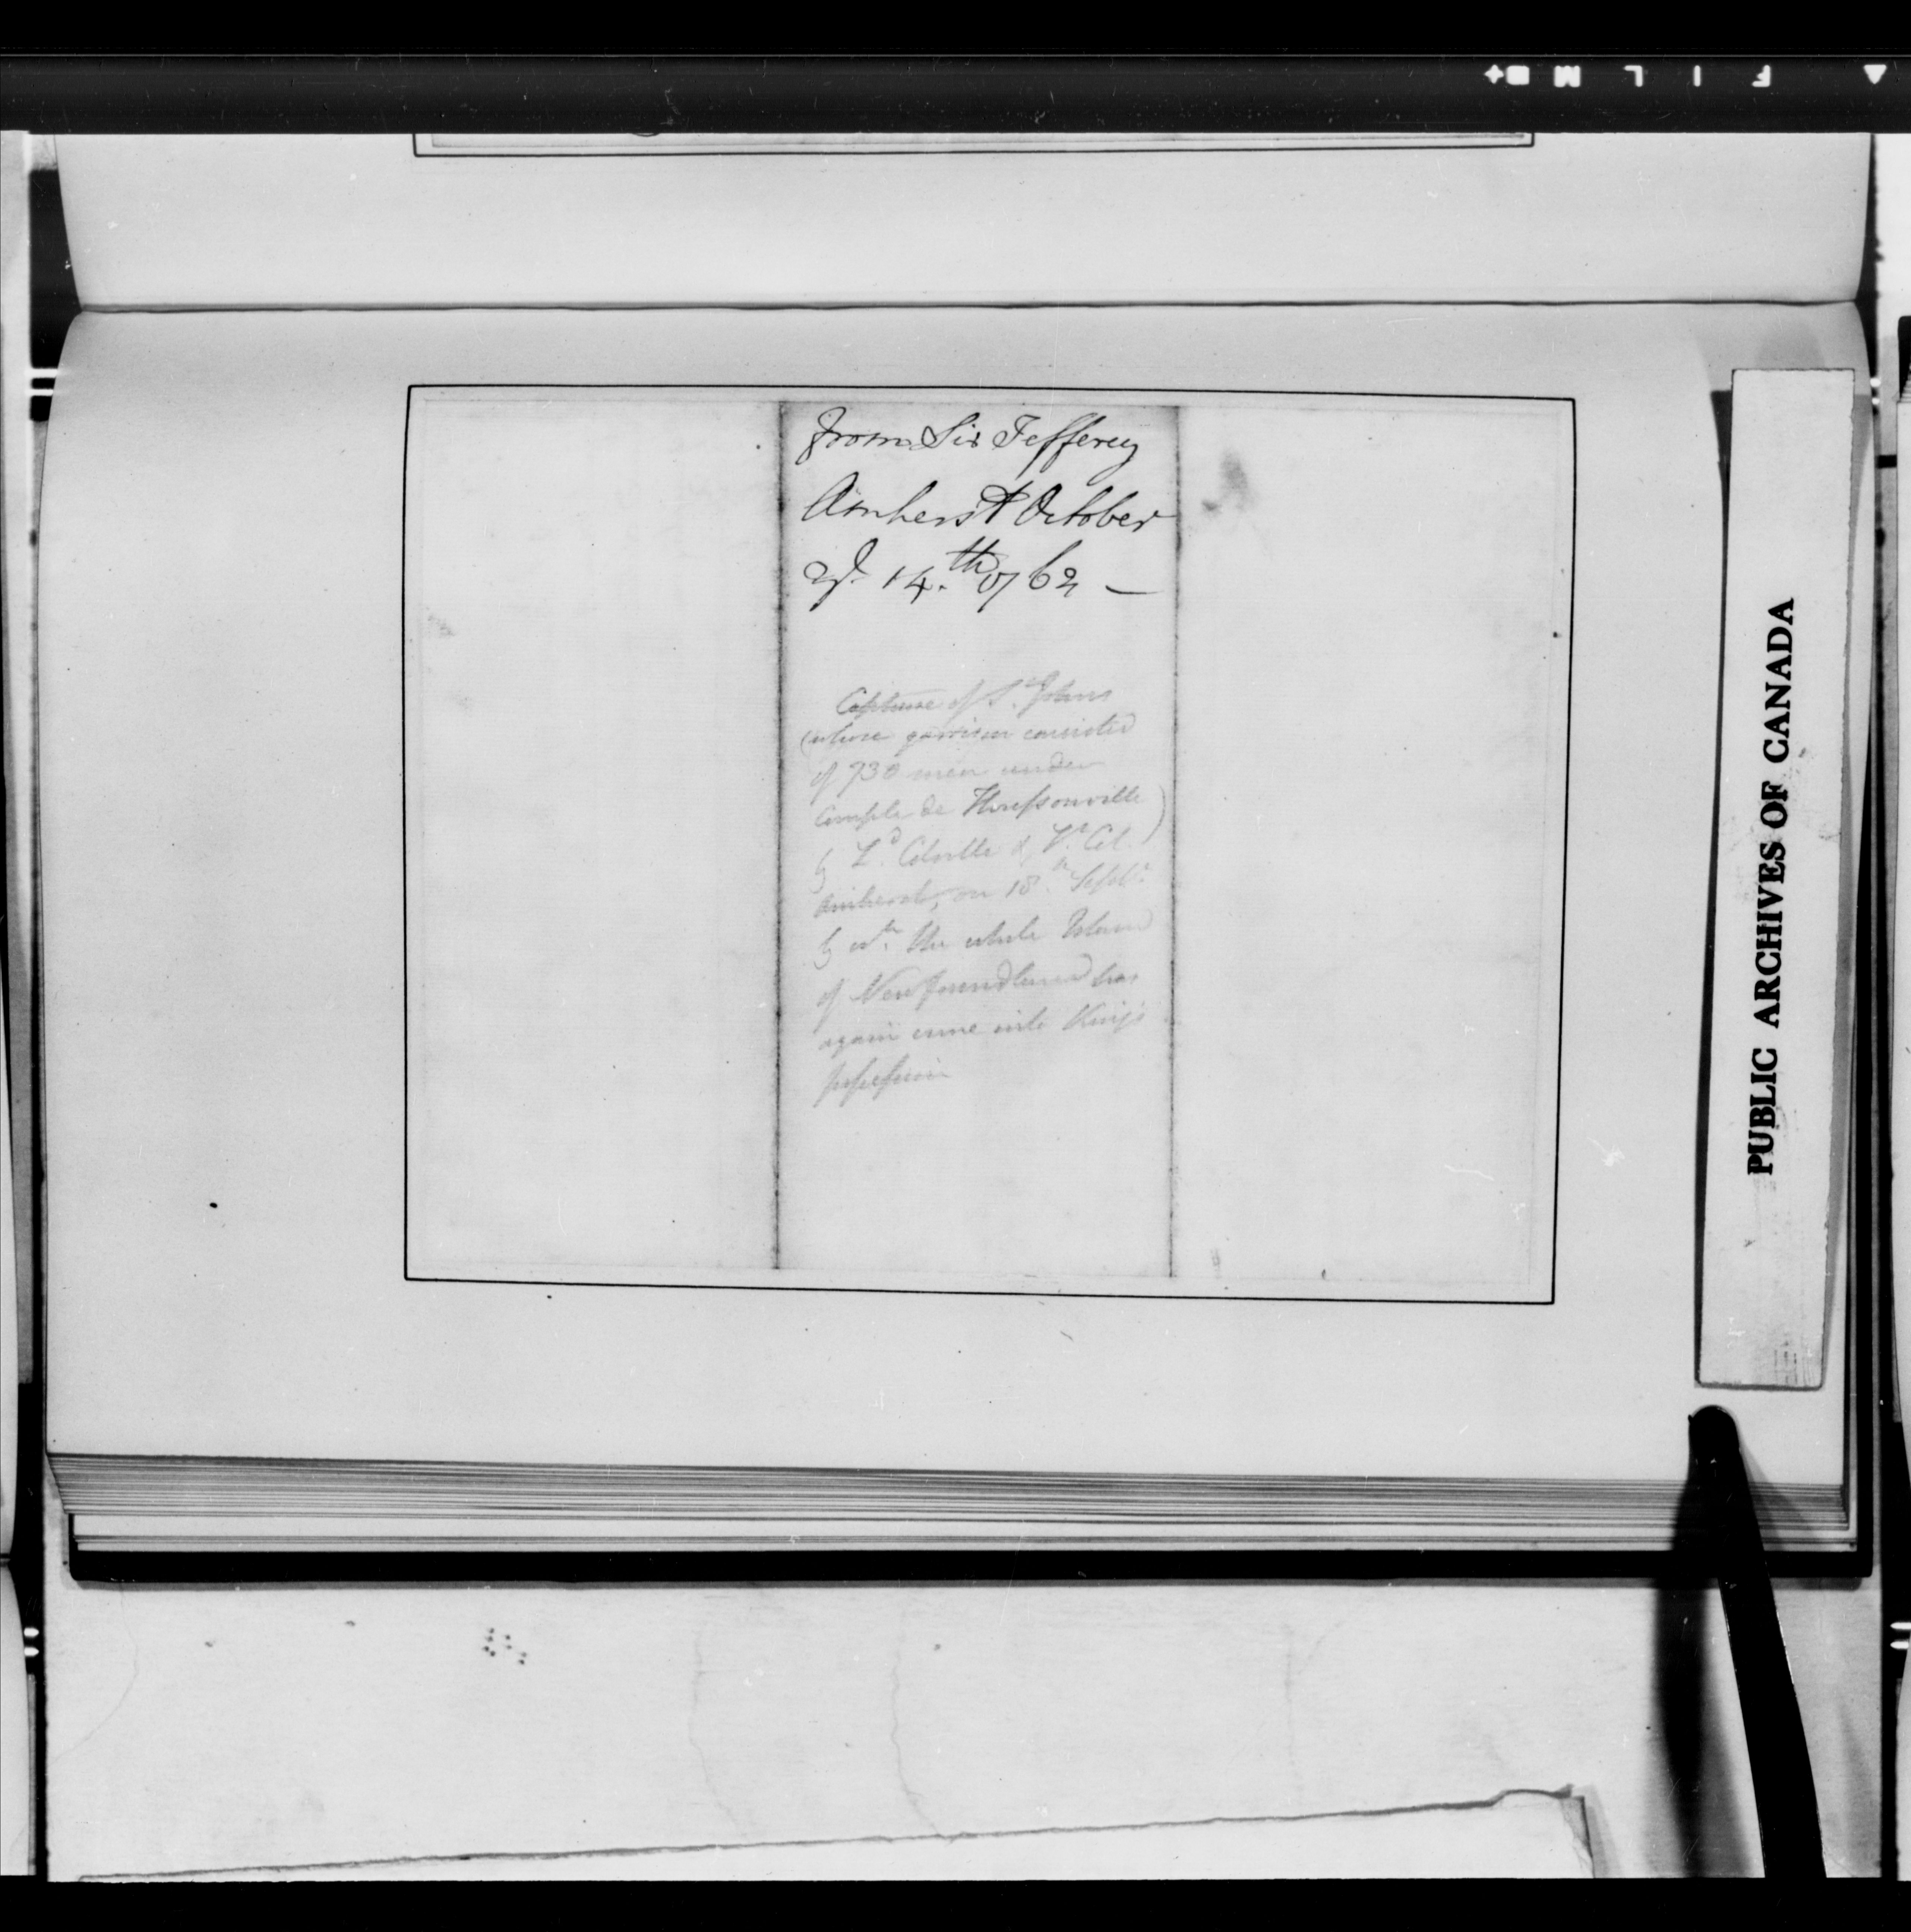 From Sir Jefferey
Amherst October
14.th 1762 —
Capture of St. Johns
(whose garrison consisted
of 730 men under
Compte de Haussonville)
by Ld. Colville & Lt. Col.
Amherst, on 18th Septbr.
by wh. the whole Island
of Newfoundland has
again come into King's
possession
PUBLIC ARCHIVES OF CANADA
FILM